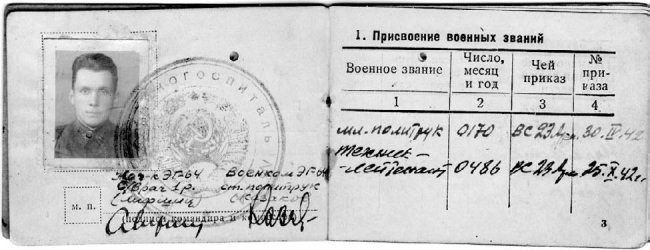 ЭВАКОГОСПИТАЛЬ
Нач. ЭГ-64 Военком ЭГ-64
Врач 1 р. ст. политрук
Казаков
м. п.
(подписи командира и
1. Присвоение военных званий
Военное звание
Число, месяц и год
Чей приказ
№ приказа
1 2 3 4
мл. политрук 0170 ВС 23 Арм. 30.IV.42
техник-
лейтенант 0486 ВС 23 Арм 25.X.42 г.
3